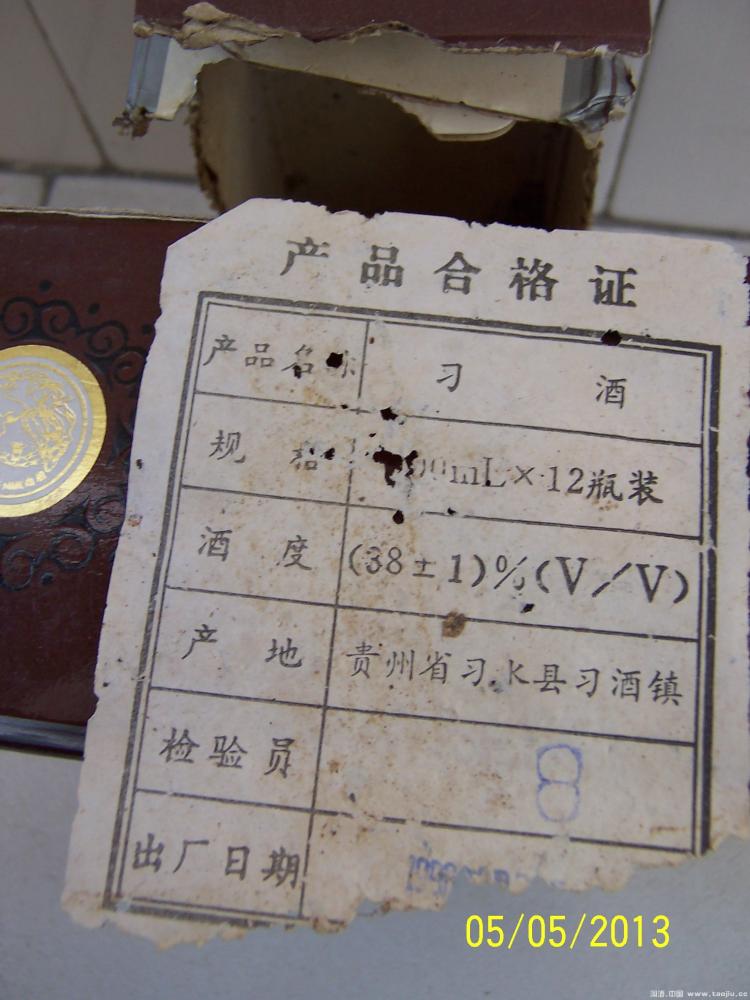 产品合格证
产品名称 习 酒
规 格 00mL×12瓶装
酒 度 (38±1)%(V/V)
产 地 贵州省习水县习酒镇
检验员 8
出厂日期
05/05/2013
www.taojiu.cc